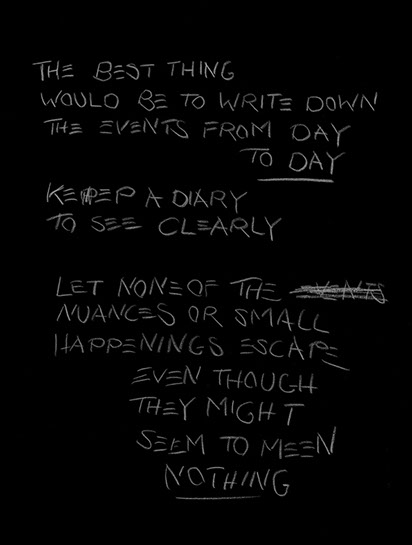 THE BEST THING
WOULD BE TO WRITE DOWN
THE EVENTS FROM DAY
TO DAY
KEEP A DIARY
TO SEE CLEARLY
LET NONE OF THE EVENTS
NUANCES OR SMALL
HAPPENINGS ESCAPE
EVEN THOUGH
THEY MIGHT
SEEM TO MEEN
NOTHING